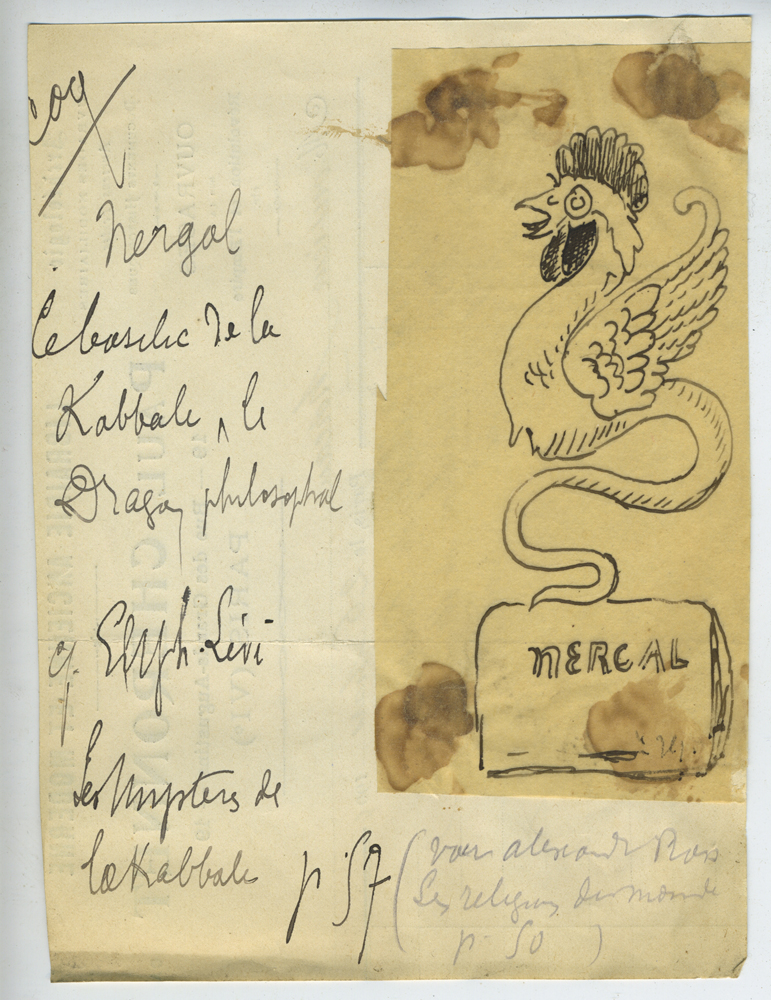 coq
Nergal
Le basilic de la
Kabbale, le
Dragon philosophal
cf. Eliph. Lévi
Les Mystères de
la Kabbale p 57
(voir alexandre Ross
Les religions du monde
p 50)
NERGAL